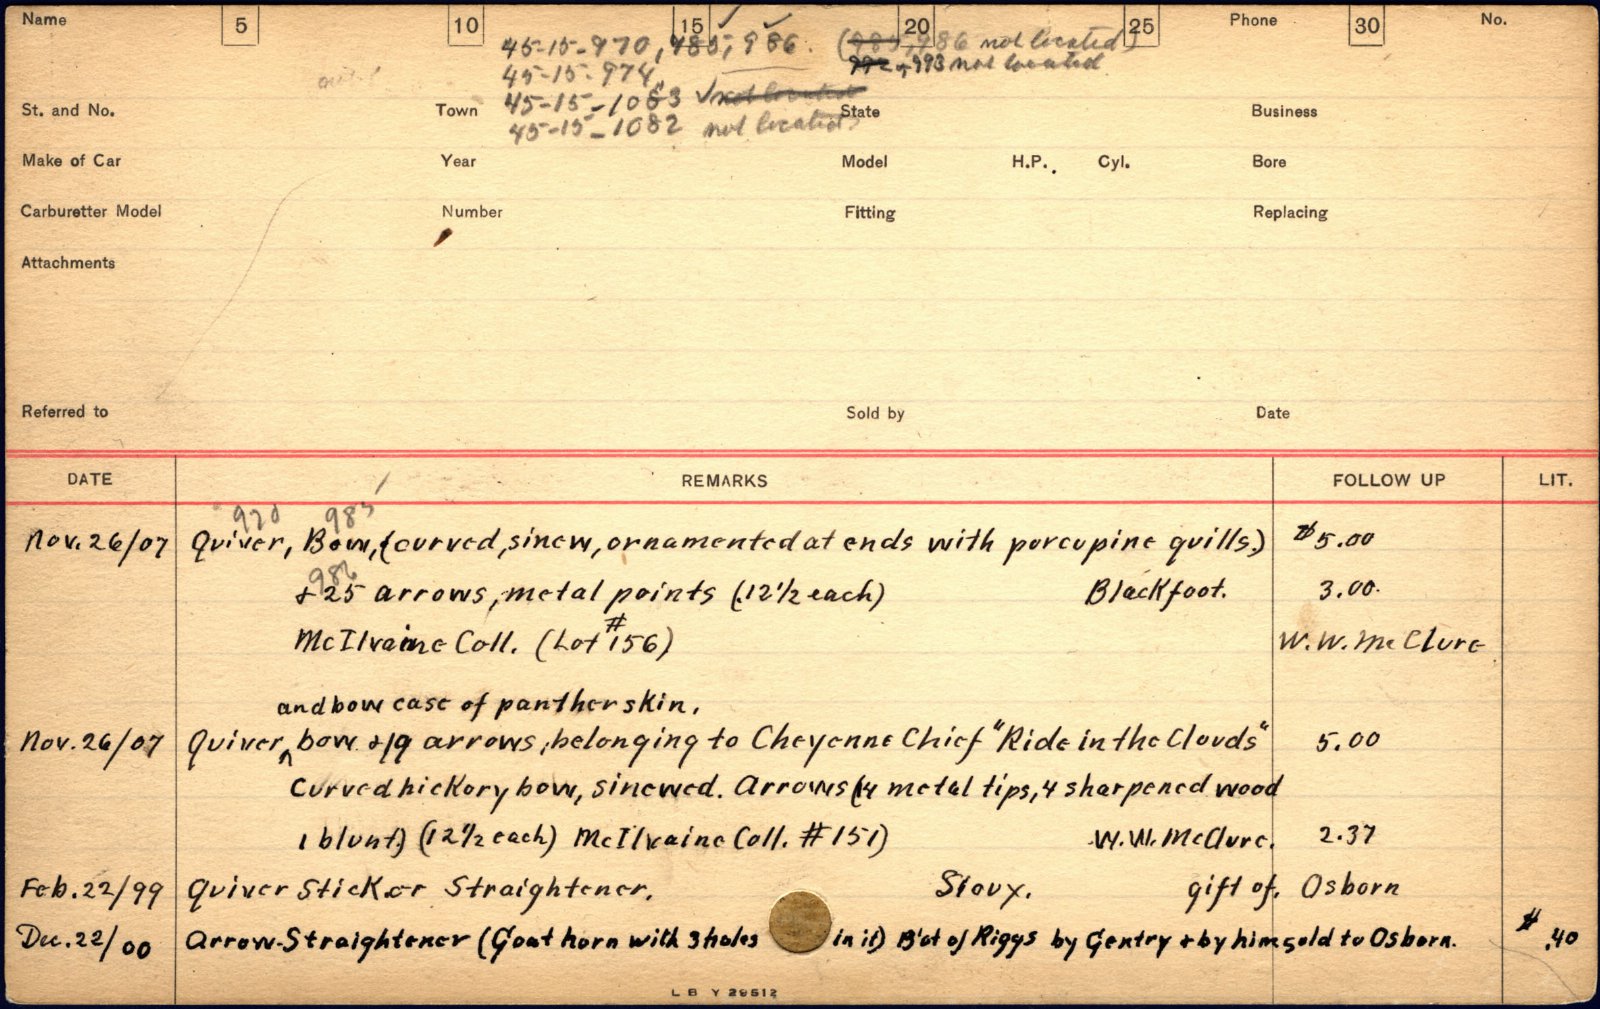 Name 5 10 15 20 25 Phone 30 No.
45-15-970, 985, 986. (985, 986 not located)
45-15-974 992 + 993 not located
St. and No. Town 45-15-1083 ✓ not located State Business
45-15-1082 not located
Make of Car Year Model H.P. Cyl. Bore
Carburetter Model Number Fitting Replacing
Attachments
Referred to Sold by Date
DATE REMARKS FOLLOW UP LIT.
970 985
Nov. 26/07 Quiver, Bow, (curved, sinew, ornamented at ends with porcupine quills.) $5.00
986
+ 25 arrows, metal points (.12 1/2 each) Blackfoot. 3.00.
McIlvaine Coll. (Lot #156) W. W. McClure
and bow case of panther skin.
Nov. 26/07 Quiver ^ bow + 19 arrows, belonging to Cheyenne Chief "Ride in the Clouds" 5.00
Curved hickory bow, sinewed. Arrows (14 metal tips, 4 sharpened wood
1 blunt.) (12 1/2 each) McIlvaine Coll. #151) W. W. McClure. 2.37
Feb. 22/99 Quiver Stick or Straightener. Sioux. gift of. Osborn
Dec. 22/00 Arrow-Straightener (Goat horn with 3 holes in it) B'ot of Riggs by Gentry + by him sold to Osborn. $ .40
L B Y 29512